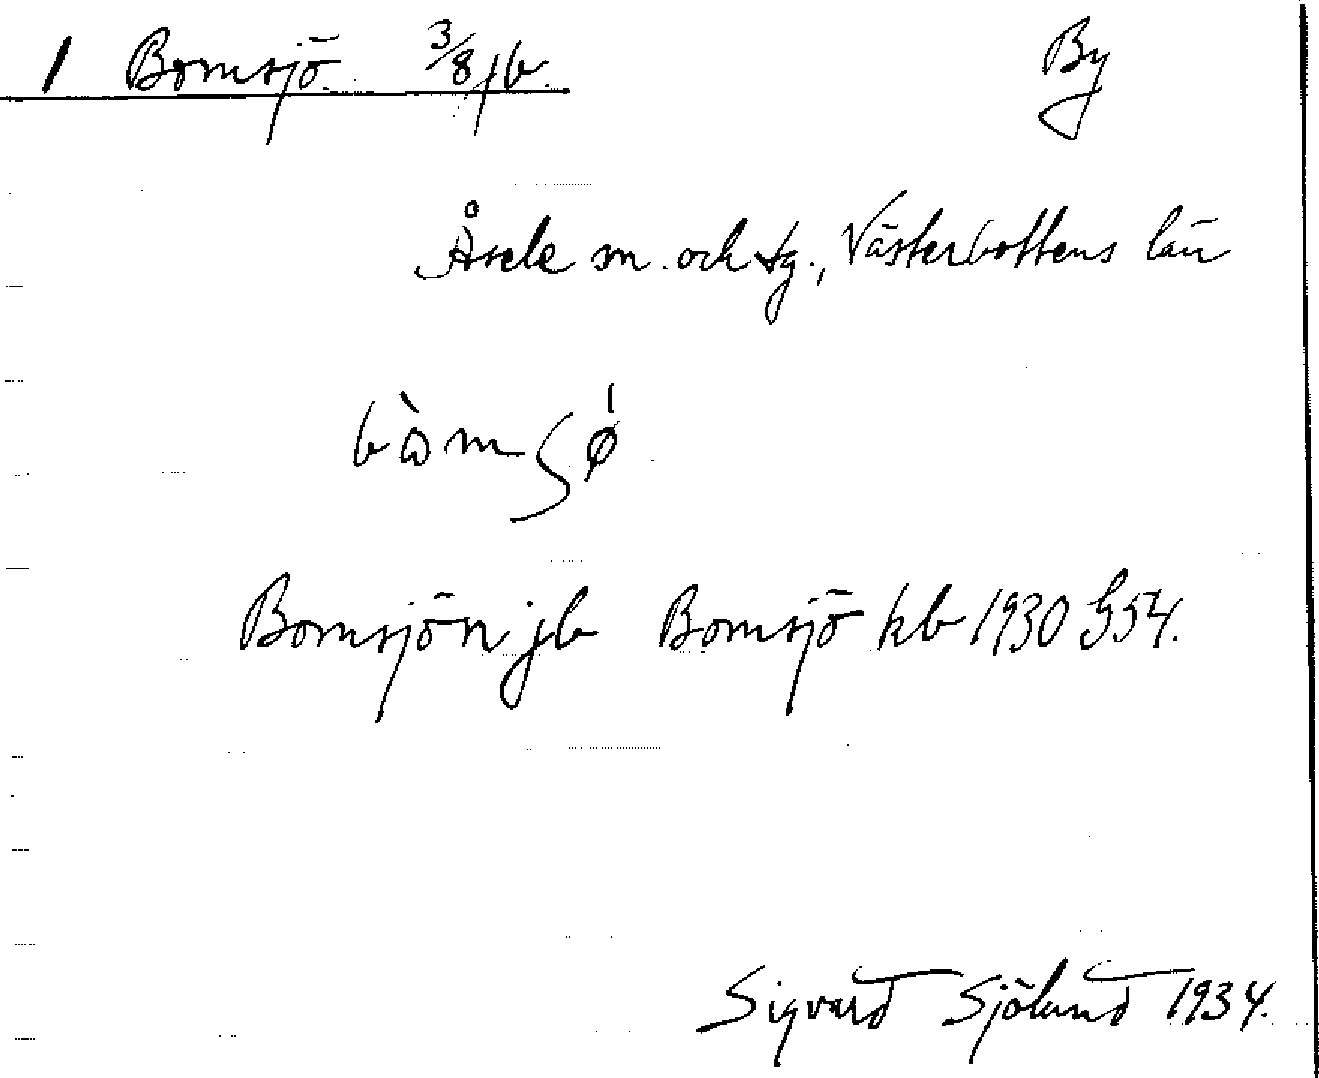 1 Bomsjö 3/8 jb. By
Åsele sn. och tg., Västerbottens län
bòmʂǿ
Bomsjön jb Bomsjö kb 1930 G54.
Sigvard Sjölund 1934.